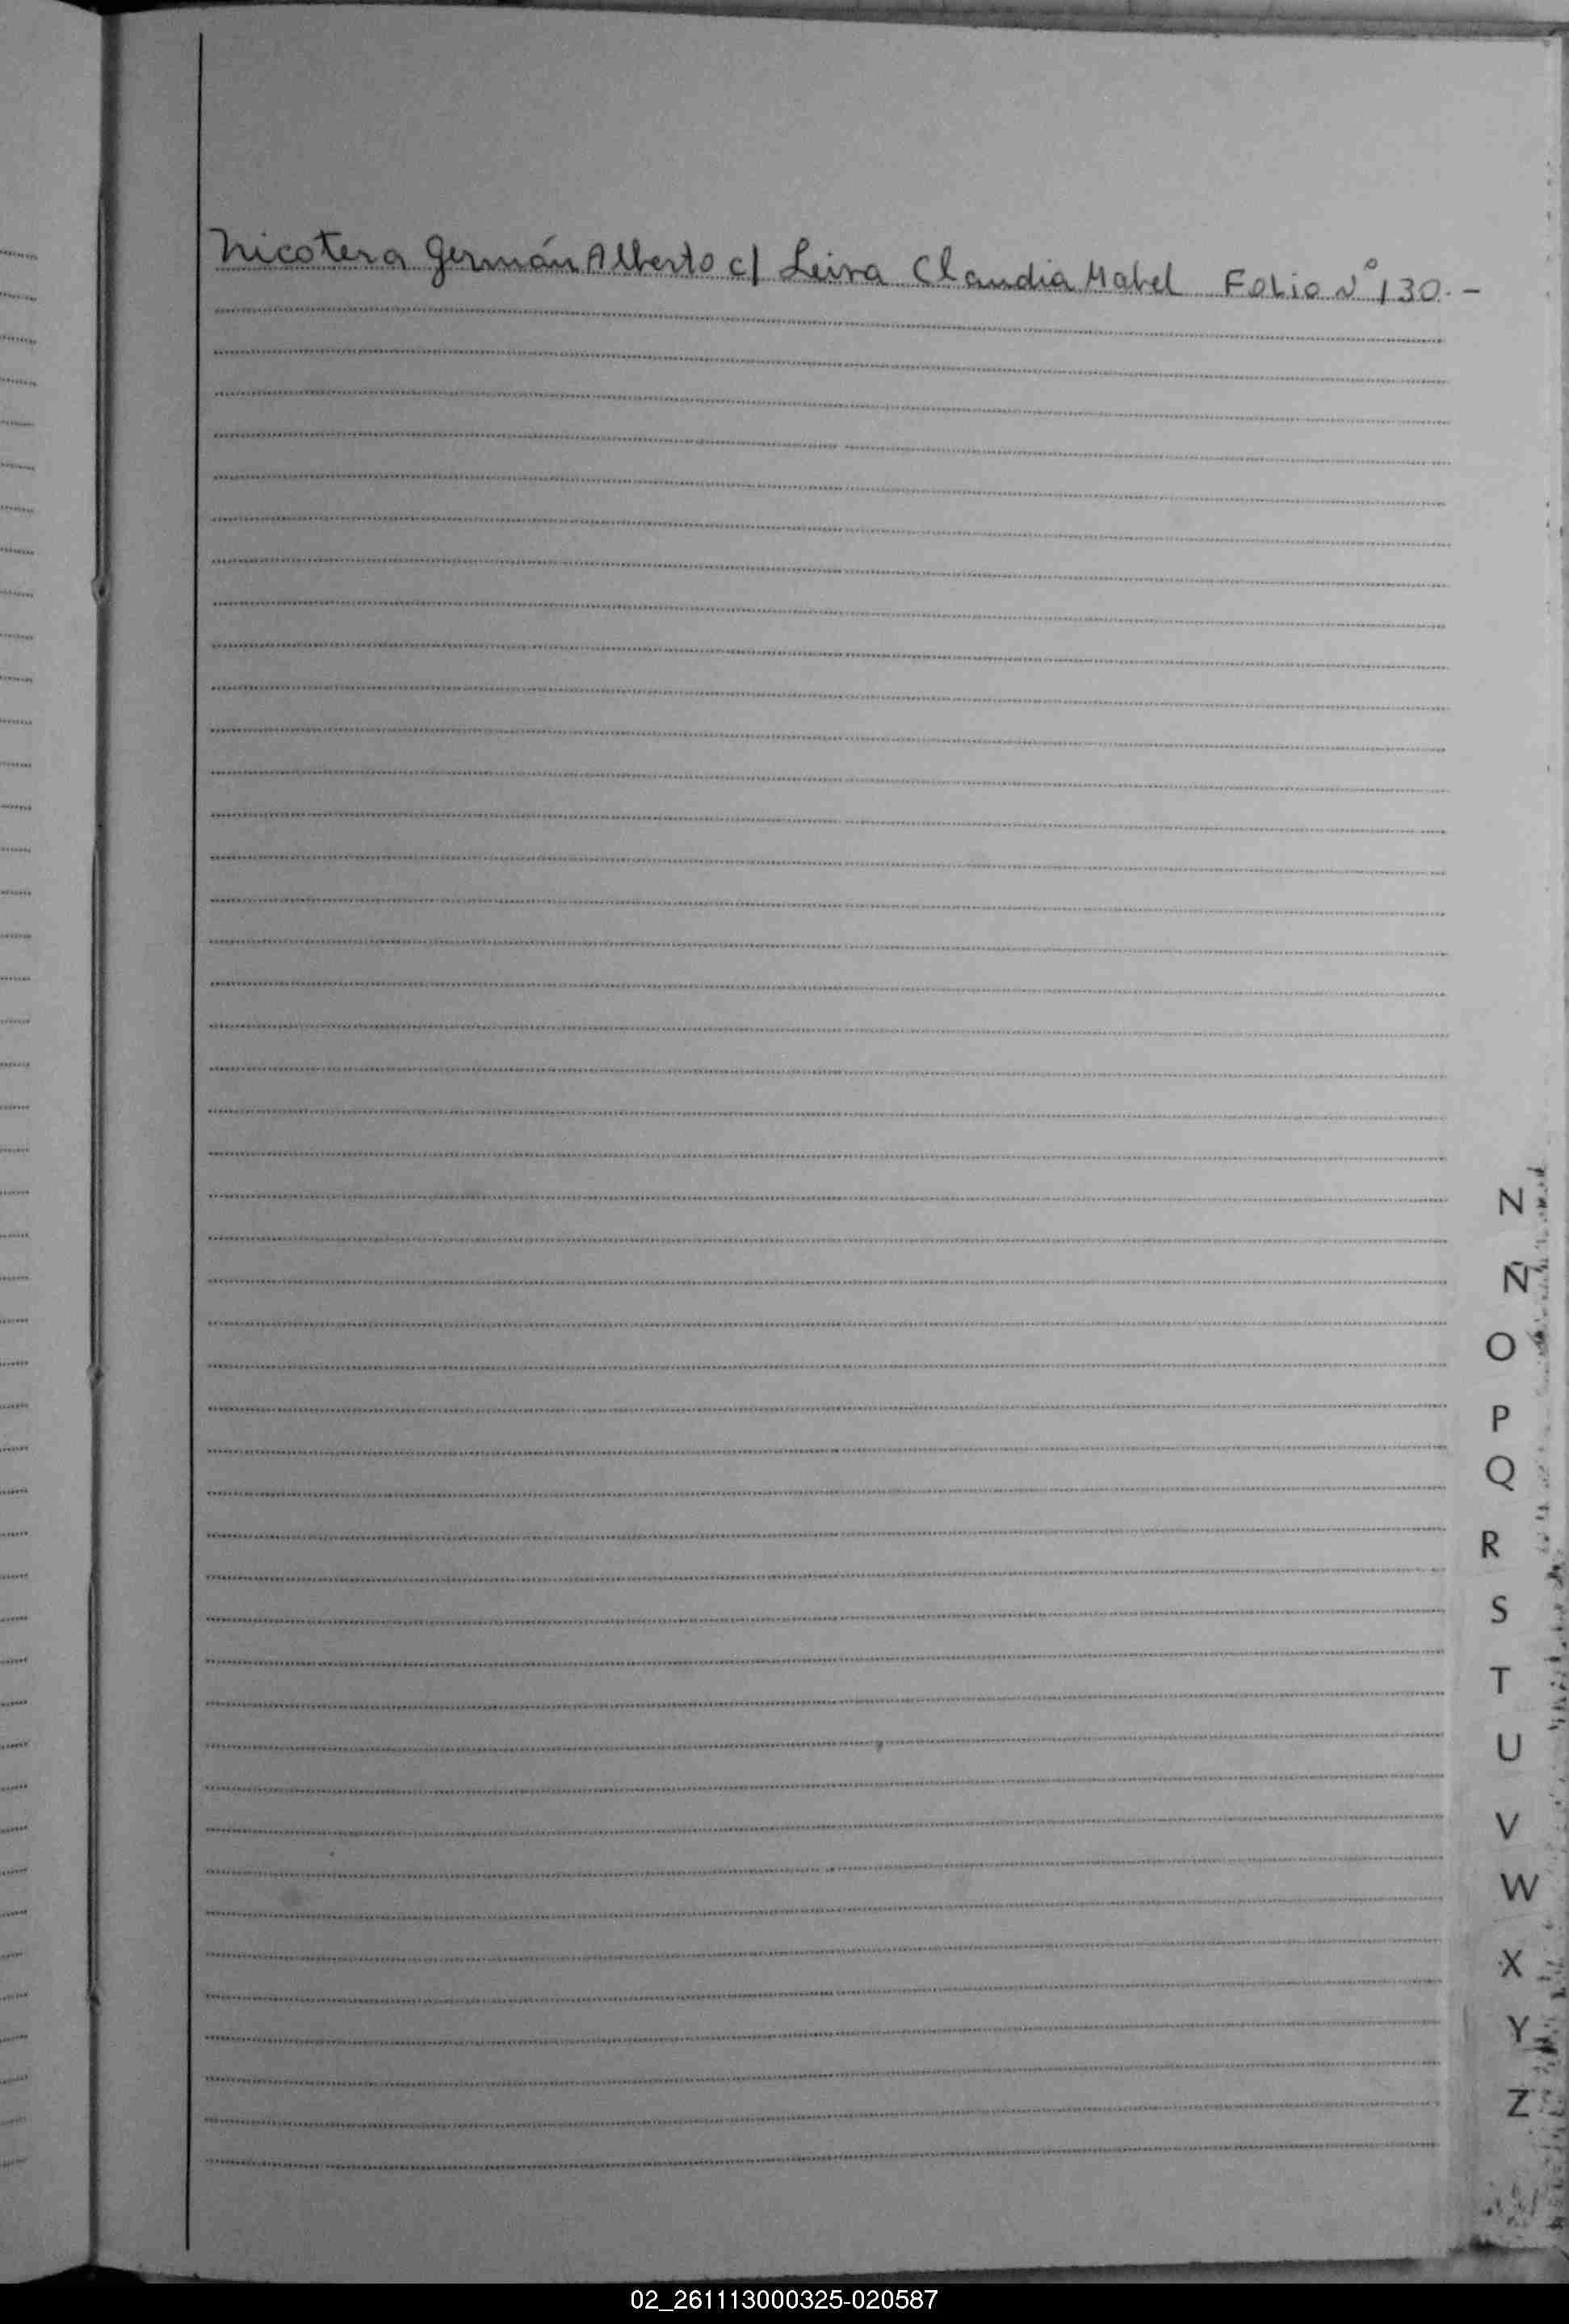 Nicotera Germán Alberto c/ Leiva Claudia Mabel Folio Nº 130.-
N
Ñ
O
P
Q
R
S
T
U
V
W
X
Y
Z
02_261113000325-020587